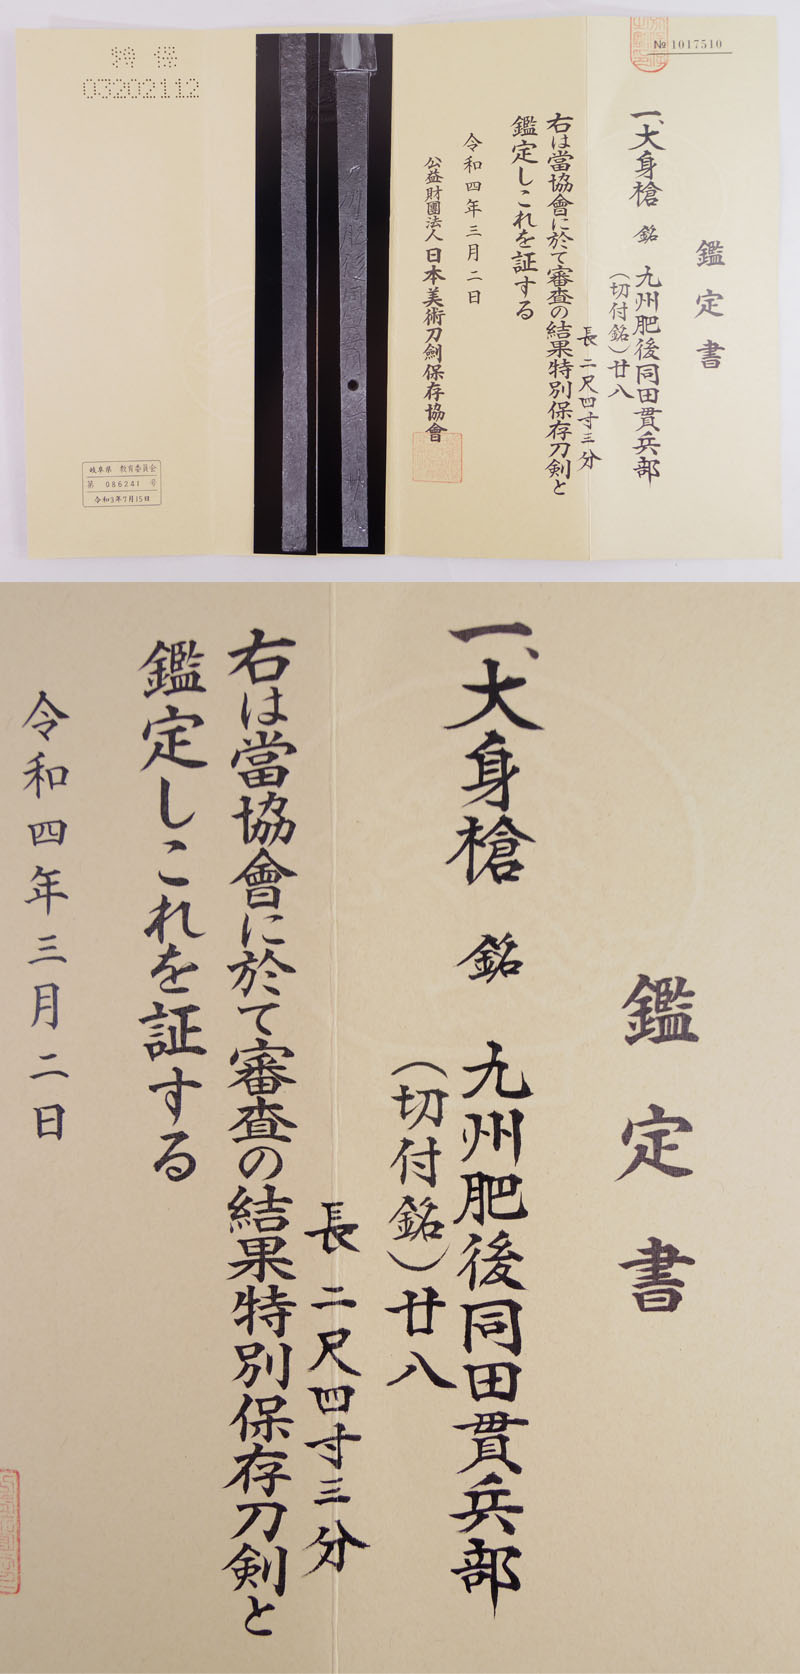 № 1017510
鑑定書
一、大身槍 銘 九州肥後同田貫兵部
(切付銘)廿八
長 二尺四寸三分
右は當協會に於て審査の結果特別保存刀剣と
鑑定しこれを証する
令和四年三月二日
公益財團法人日本美術刀劍保存協會
特保
03202112
岐阜県 教育委員会
第 086241 号
令和3年7月15日
鑑定書
一、大身槍 銘 九州肥後同田貫兵部
(切付銘)廿八
長 二尺四寸三分
右は當協會に於て審査の結果特別保存刀剣と
鑑定しこれを証する
令和四年三月二日